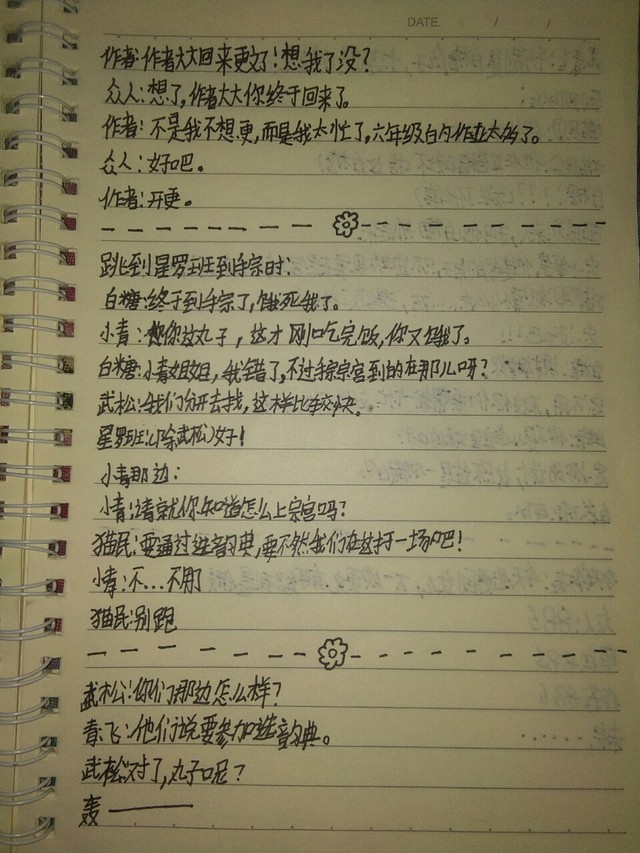 DATE / /
作者:作者大大回来更文了!想我了没?
众人:想了,作者大大你终于回来了。
作者:不是我不想更,而是我太忙了,六年级白勺作业太多了。
众人:好吧。
作者:开更。
跳到星罗班到手宗时:
白糖:终于到手宗了,饿死我了。
小青:你这丸子,这才刚吃完饭,你又饿了。
白糖:小青姐姐,我错了,不过手宗宗宫到的在那儿呀?
武松:我们分开去找,这样比较快。
星罗班:(除武松)好!
小青那边:
小青:请就你知道怎么上宗宫吗?
猫民:要通过选韵典,要不然我们在这打一场吧!
小青:不...不用
猫民:别跑
武松:你们那边怎么样?
青.飞:他们说要参加选韵典。
武松:对了,丸子呢?
轰——